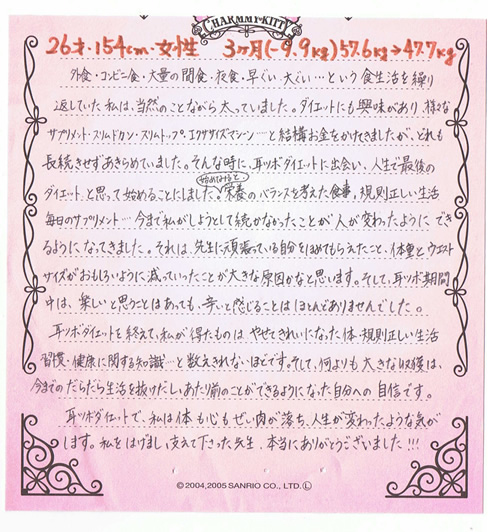 CHARMMY KITTY
26才・154cm・女性 3ヶ月(-9.9kg)57.6kg→47.7kg
外食・コンビニ食・大量の間食・夜食・早ぐい・大ぐい…という食生活を繰り
返していた私は、当然のことながら太っていました。ダイエットにも興味があり、様々な
サプリメント・スリムドカン・スリムトップ。エクササイズマシーン…と結構お金をかけてきましたが、どれも
長続きせずあきらめていました。そんな時に、耳ツボダイエットに出会い、人生で最後の
ダイエット、と思って始めることにしました。始めてみると、栄養のバランスを考えた食事、規則正しい生活
毎日のサプリメント…今まで私がしようとして続かなかったことが人が変わったようにでき
るようになってきました。それは、先生に頑張っている自分をほめてもらえたこと、体重とウエスト
サイズがおもしろいように減っていったことが大きな原因かなと思います。そして、耳ツボ期間
中は、楽しいと思うことはあっても、辛いと感じることはほとんどありませんでした。
耳ツボダイエットを終えて、私が得たものは、やせてきれいになった体・規則正しい生活
習慣・健康に関する知識…と数えきれないほどです。そして、何よりも大きな収穫は、
今までのだらだら生活を抜けだし、あたり前のことができるようになった自分への自信です。
耳ツボダイエットで、私は体も心もぜい肉が落ち、人生が変わったような気が
します。私をはげまし、支えて下さった先生、本当にありがとうございました!!!
©2004,2005 SANRIO CO., LTD. Ⓛ